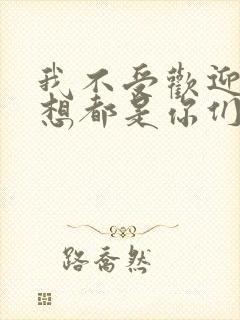 我不受歡迎
想都是你們
路喬然